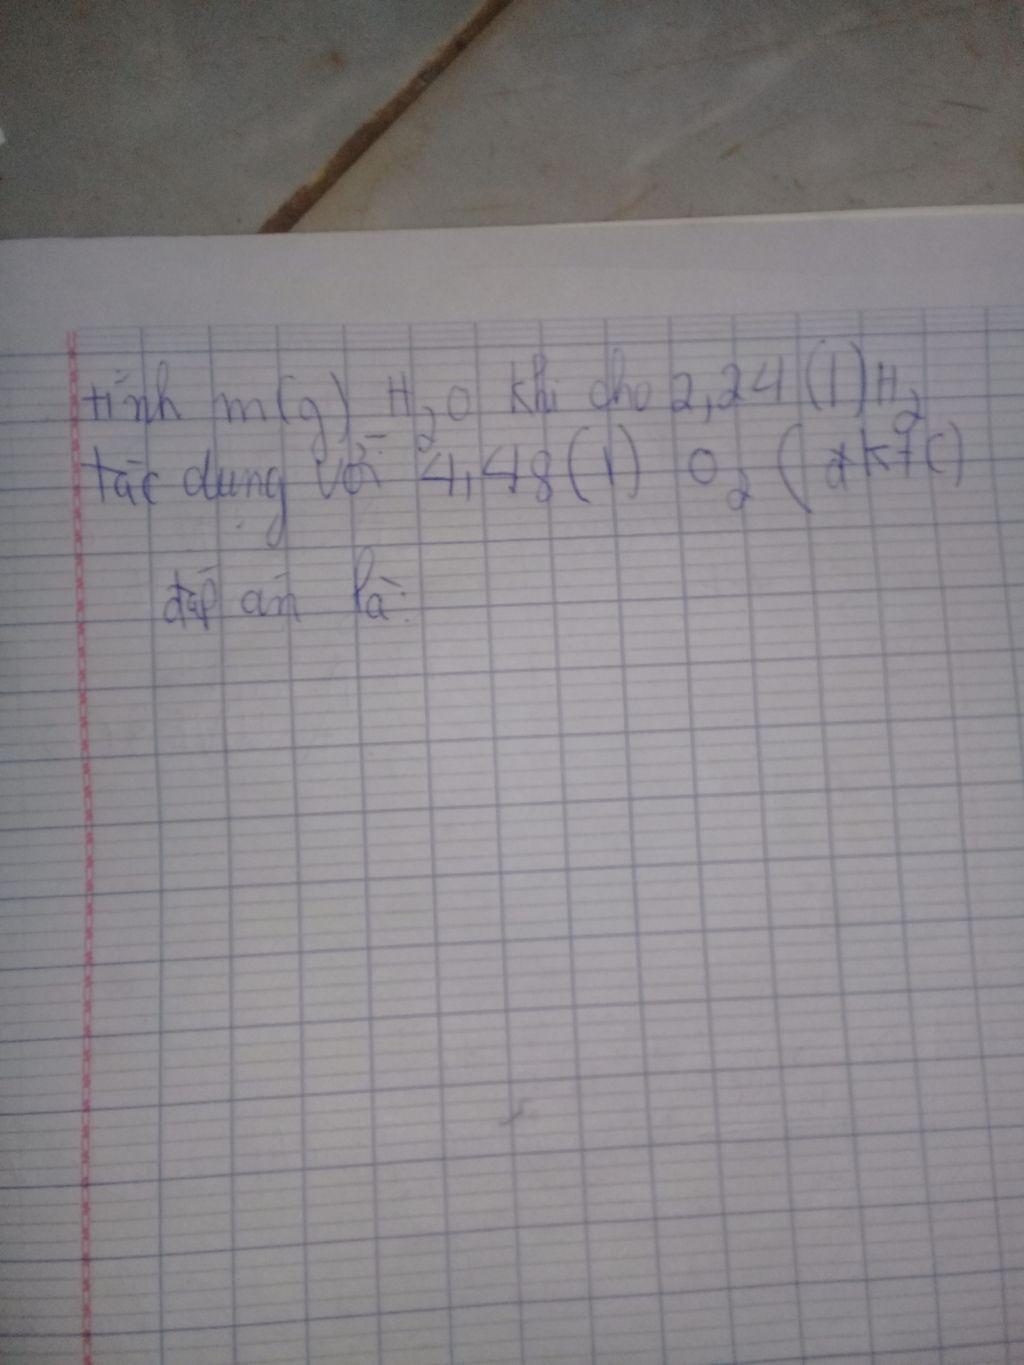 tính m(g) H₂O khi cho 2,24 (l) H₂
tác dụng với 4,48 (l) O₂ (đktc)
đáp án là: